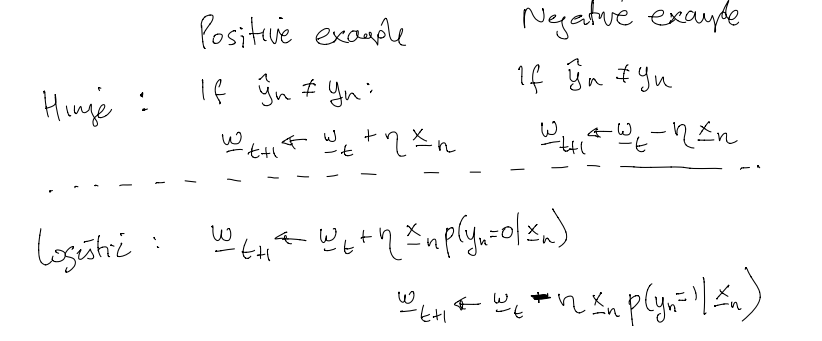 Positive example Negative example
Hinge : If ŷn ≠ yn : If ŷn ≠ yn
w_t+1 ← w_t + η x_n w_t+1 ← w_t − η x_n
Logistic : w_t+1 ← w_t + η x_n p(yn=0|x_n)
w_t+1 ← w_t − η x_n p(yn=1|x_n)